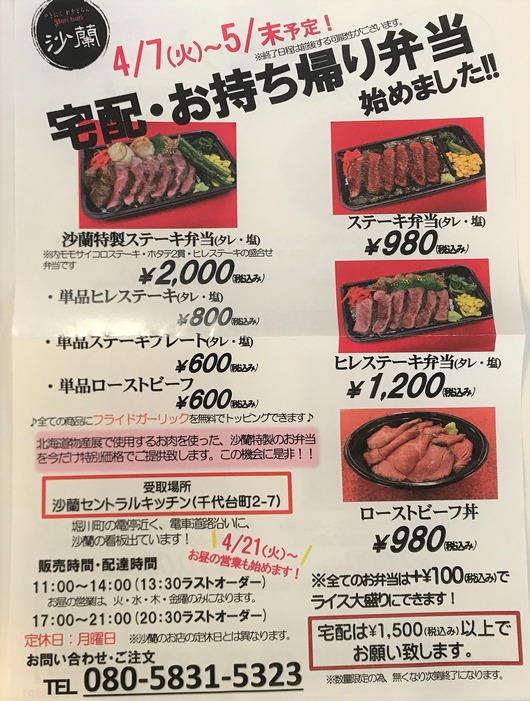 やきにく れすとらん
Sari-Ran
沙蘭
4/7(火)～5/末予定！
※終了日程は前後する可能性がございます。
宅配・お持ち帰り弁当
始めました!!
沙蘭特製ステーキ弁当(タレ・塩)
※内モモサイコロステーキ・ホタテ2貫・ヒレステーキの盛合せ
弁当です
¥2,000(税込み)
・単品ヒレステーキ(タレ・塩)
¥800(税込み)
・単品ステーキプレート(タレ・塩)
¥600(税込み)
・単品ローストビーフ
¥600(税込み)
ステーキ弁当(タレ・塩)
¥980(税込み)
ヒレステーキ弁当(タレ・塩)
¥1,200(税込み)
ローストビーフ丼
¥980(税込み)
♪全ての商品にフライドガーリックを無料でトッピングできます♪
北海道物産展で使用するお肉を使った、沙蘭特製のお弁当
を今だけ特別価格でご提供致します。この機会に是非！！
受取場所
沙蘭セントラルキッチン(千代台町2-7)
堀川町の電停近く、電車道路沿いに、
沙蘭の看板出ています！
4/21(火)～
お昼の営業も始めます！
販売時間・配達時間
11:00～14:00 (13:30ラストオーダー)
お昼の営業は、火・水・木・金曜のみになります。
17:00～21:00 (20:30ラストオーダー)
定休日：月曜日 ※沙蘭のお店の定休日とは異なります。
お問い合わせ・ご注文
TEL 080-5831-5323
※全てのお弁当は+¥100(税込み)で
ライス大盛りにできます！
宅配は¥1,500(税込み)以上で
お願い致します。
※数量限定の為、無くなり次第終了になります。